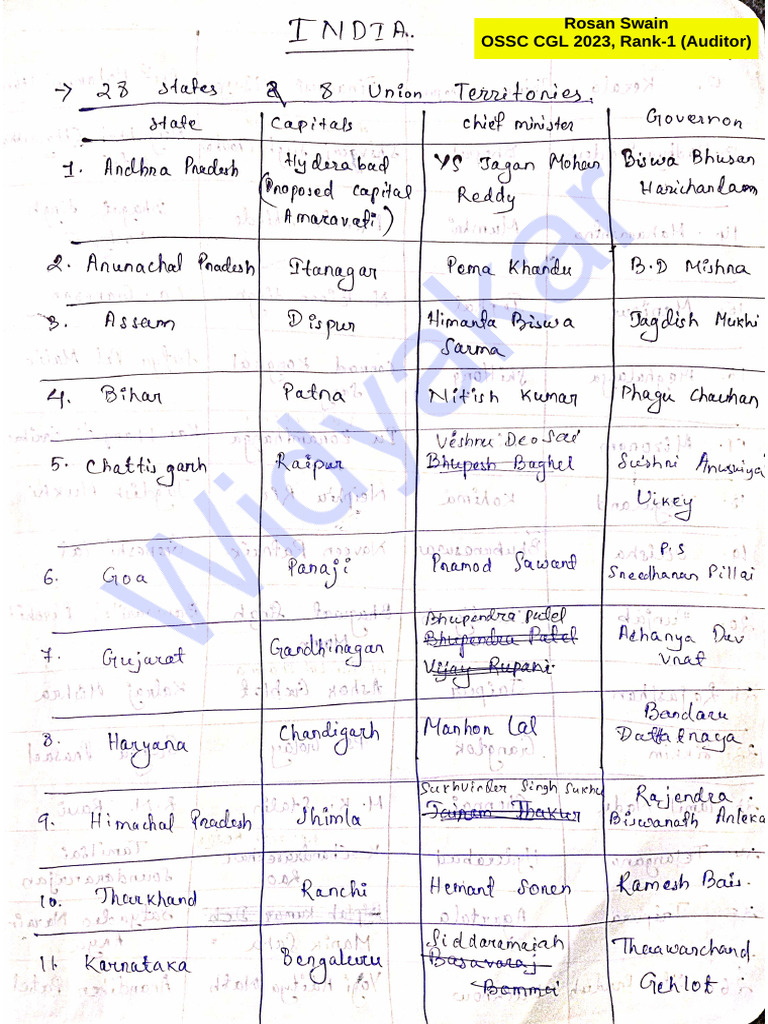 INDIA.
Rosan Swain
OSSC CGL 2023, Rank-1 (Auditor)
→ 28 states & 8 Union Territories.
State Capitals Chief minister Governor
1. Andhra Pradesh Hyderabad (Proposed capital Amaravati) YS Jagan Mohan Reddy Biswa Bhusan Harichandam
2. Arunachal Pradesh Itanagar Pema Khandu B.D Mishra
3. Assam Dispur Himanta Biswa Sarma Jagdish Mukhi
4. Bihar Patna Nitish Kumar Phagu Chauhan
5. Chattisgarh Raipur Vishnu Deo Sai Bhupesh Baghel Sushri Anusuiya Uikey
6. Goa Panaji Pramod Sawant P.S Sreedharan Pillai
7. Gujarat Gandhinagar Bhupendra Patel Bhupendra Patel Vijay Rupani Acharya Dev vrat
8. Haryana Chandigarh Manhor Lal Bandaru Dattatraya
9. Himachal Pradesh Shimla Sukhvinder Singh Sukhu Jairam Thakur Rajendra Biswanath Arleka
10. Jharkhand Ranchi Hemant Soren Ramesh Bais.
11. Karnataka Bengaluru Siddaramaiah Basavaraj Bommai Thaawarchand Gehlot
Widyakar